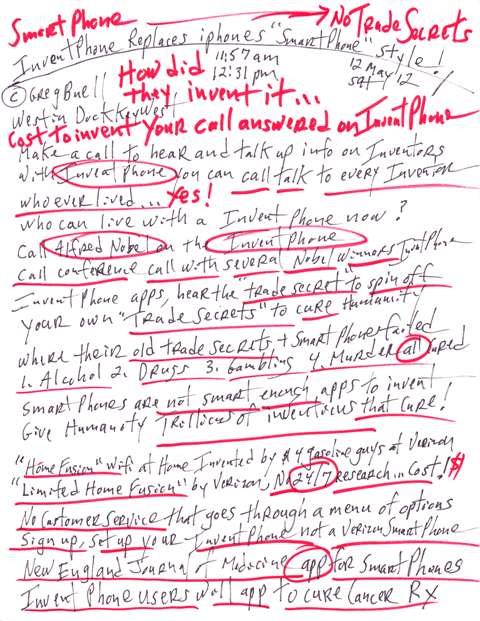 SmartPhone → No Trade Secrets
InventPhone Replaces iphones "SmartPhone" style!
11:57am
12:31pm
12 May
sat 12
How did
they invent it...
© Greg Buell
West in Dock Key West
Cost to invent your call answered on InventPhone
Make a call to hear and talk up info on Inventors
with Invent Phone you can call talk to every Inventor
who ever lived... Yes!
who can live with a Invent Phone now?
Call Alfred Nobel on the Invent Phone
Call conference call with several Nobel Winnors InvtPhone
Invent Phone apps, hear the "trade secret" to spin off
your own "Trade secrets" to cure Humanity
where their old trade secrets, + Smart Phones failed
1. Alcohol 2. Drugs 3. Gambling 4. Murder all cured
Smart Phones are not smart enough apps to invent
Give Humanity Trillions of inventions that cure!
"Home Fusion" wifi at Home Invented by $4 gasoline guys at Verizon
"Limited Home Fusion" by Verizon, No 24/7 Research in Cost! $
No Customer service that goes through a menu of options
Sign up, set up your Invent Phone not a Verizon SmartPhone
New England Journal of Medicine app for Smart Phones
Invent Phone users will app to cure Cancer Rx